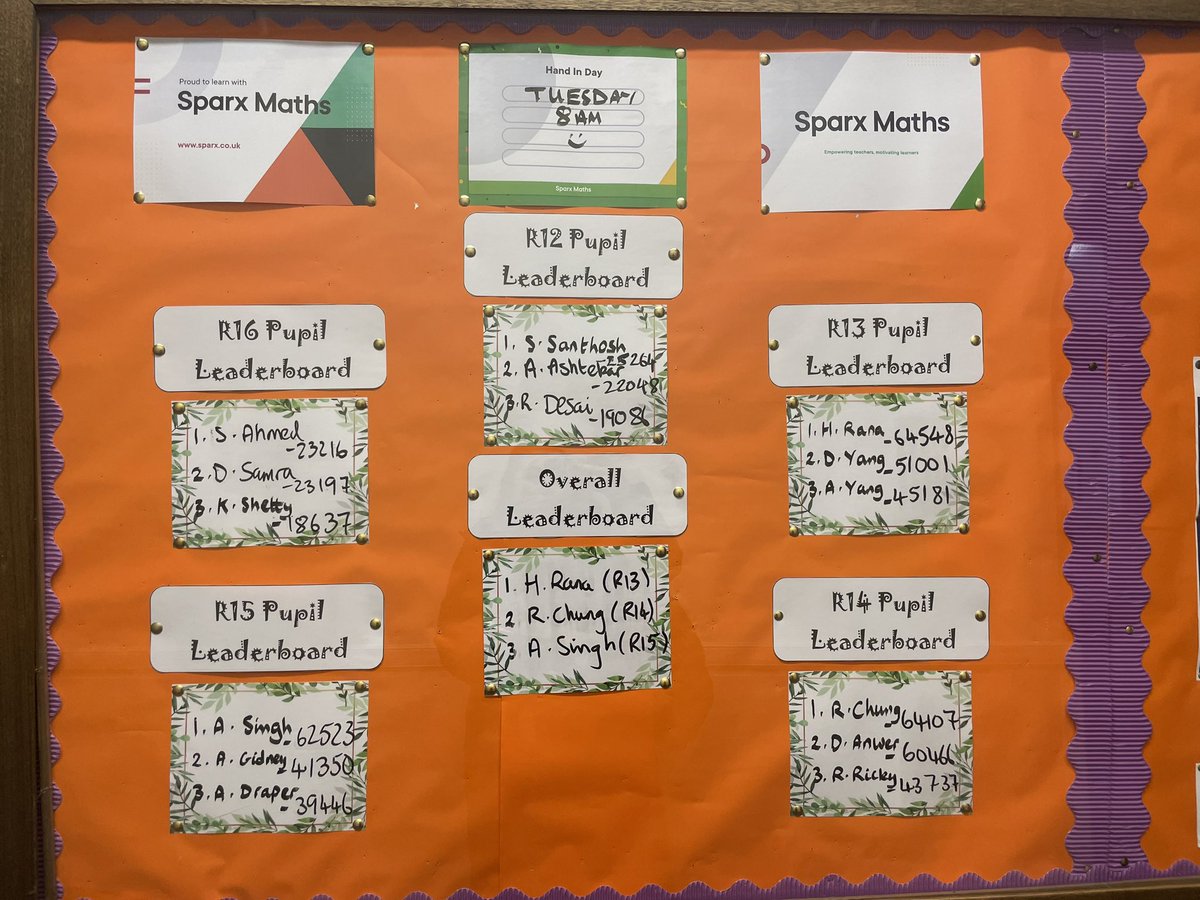 Proud to learn with
Sparx Maths
www.sparx.co.uk
Hand In Day
TUESDAY
8AM
Sparx Maths
Sparx Maths
Empowering teachers, motivating learners
R12 Pupil
Leaderboard
1. S. Santhosh
-25264
2. A. Ashtekar
-22048
3. R. Desai
-19086
R16 Pupil
Leaderboard
1. S. Ahmed
-23216
2. D. Samra
-23197
3. K. Shetty
-18637
R13 Pupil
Leaderboard
1. H. Rana -64548
2. D. Yang -51001
3. A. Yang -45181
Overall
Leaderboard
1. H. Rana (R13)
2 R. Chung (R14)
3 A. Singh (R15)
R15 Pupil
Leaderboard
1. A. Singh -62523
2. A. Gidney -41350
3. A. Draper -39446
R14 Pupil
Leaderboard
1. R. Chung -64107
2. D. Anwer -60466
3. R. Ricky -43737